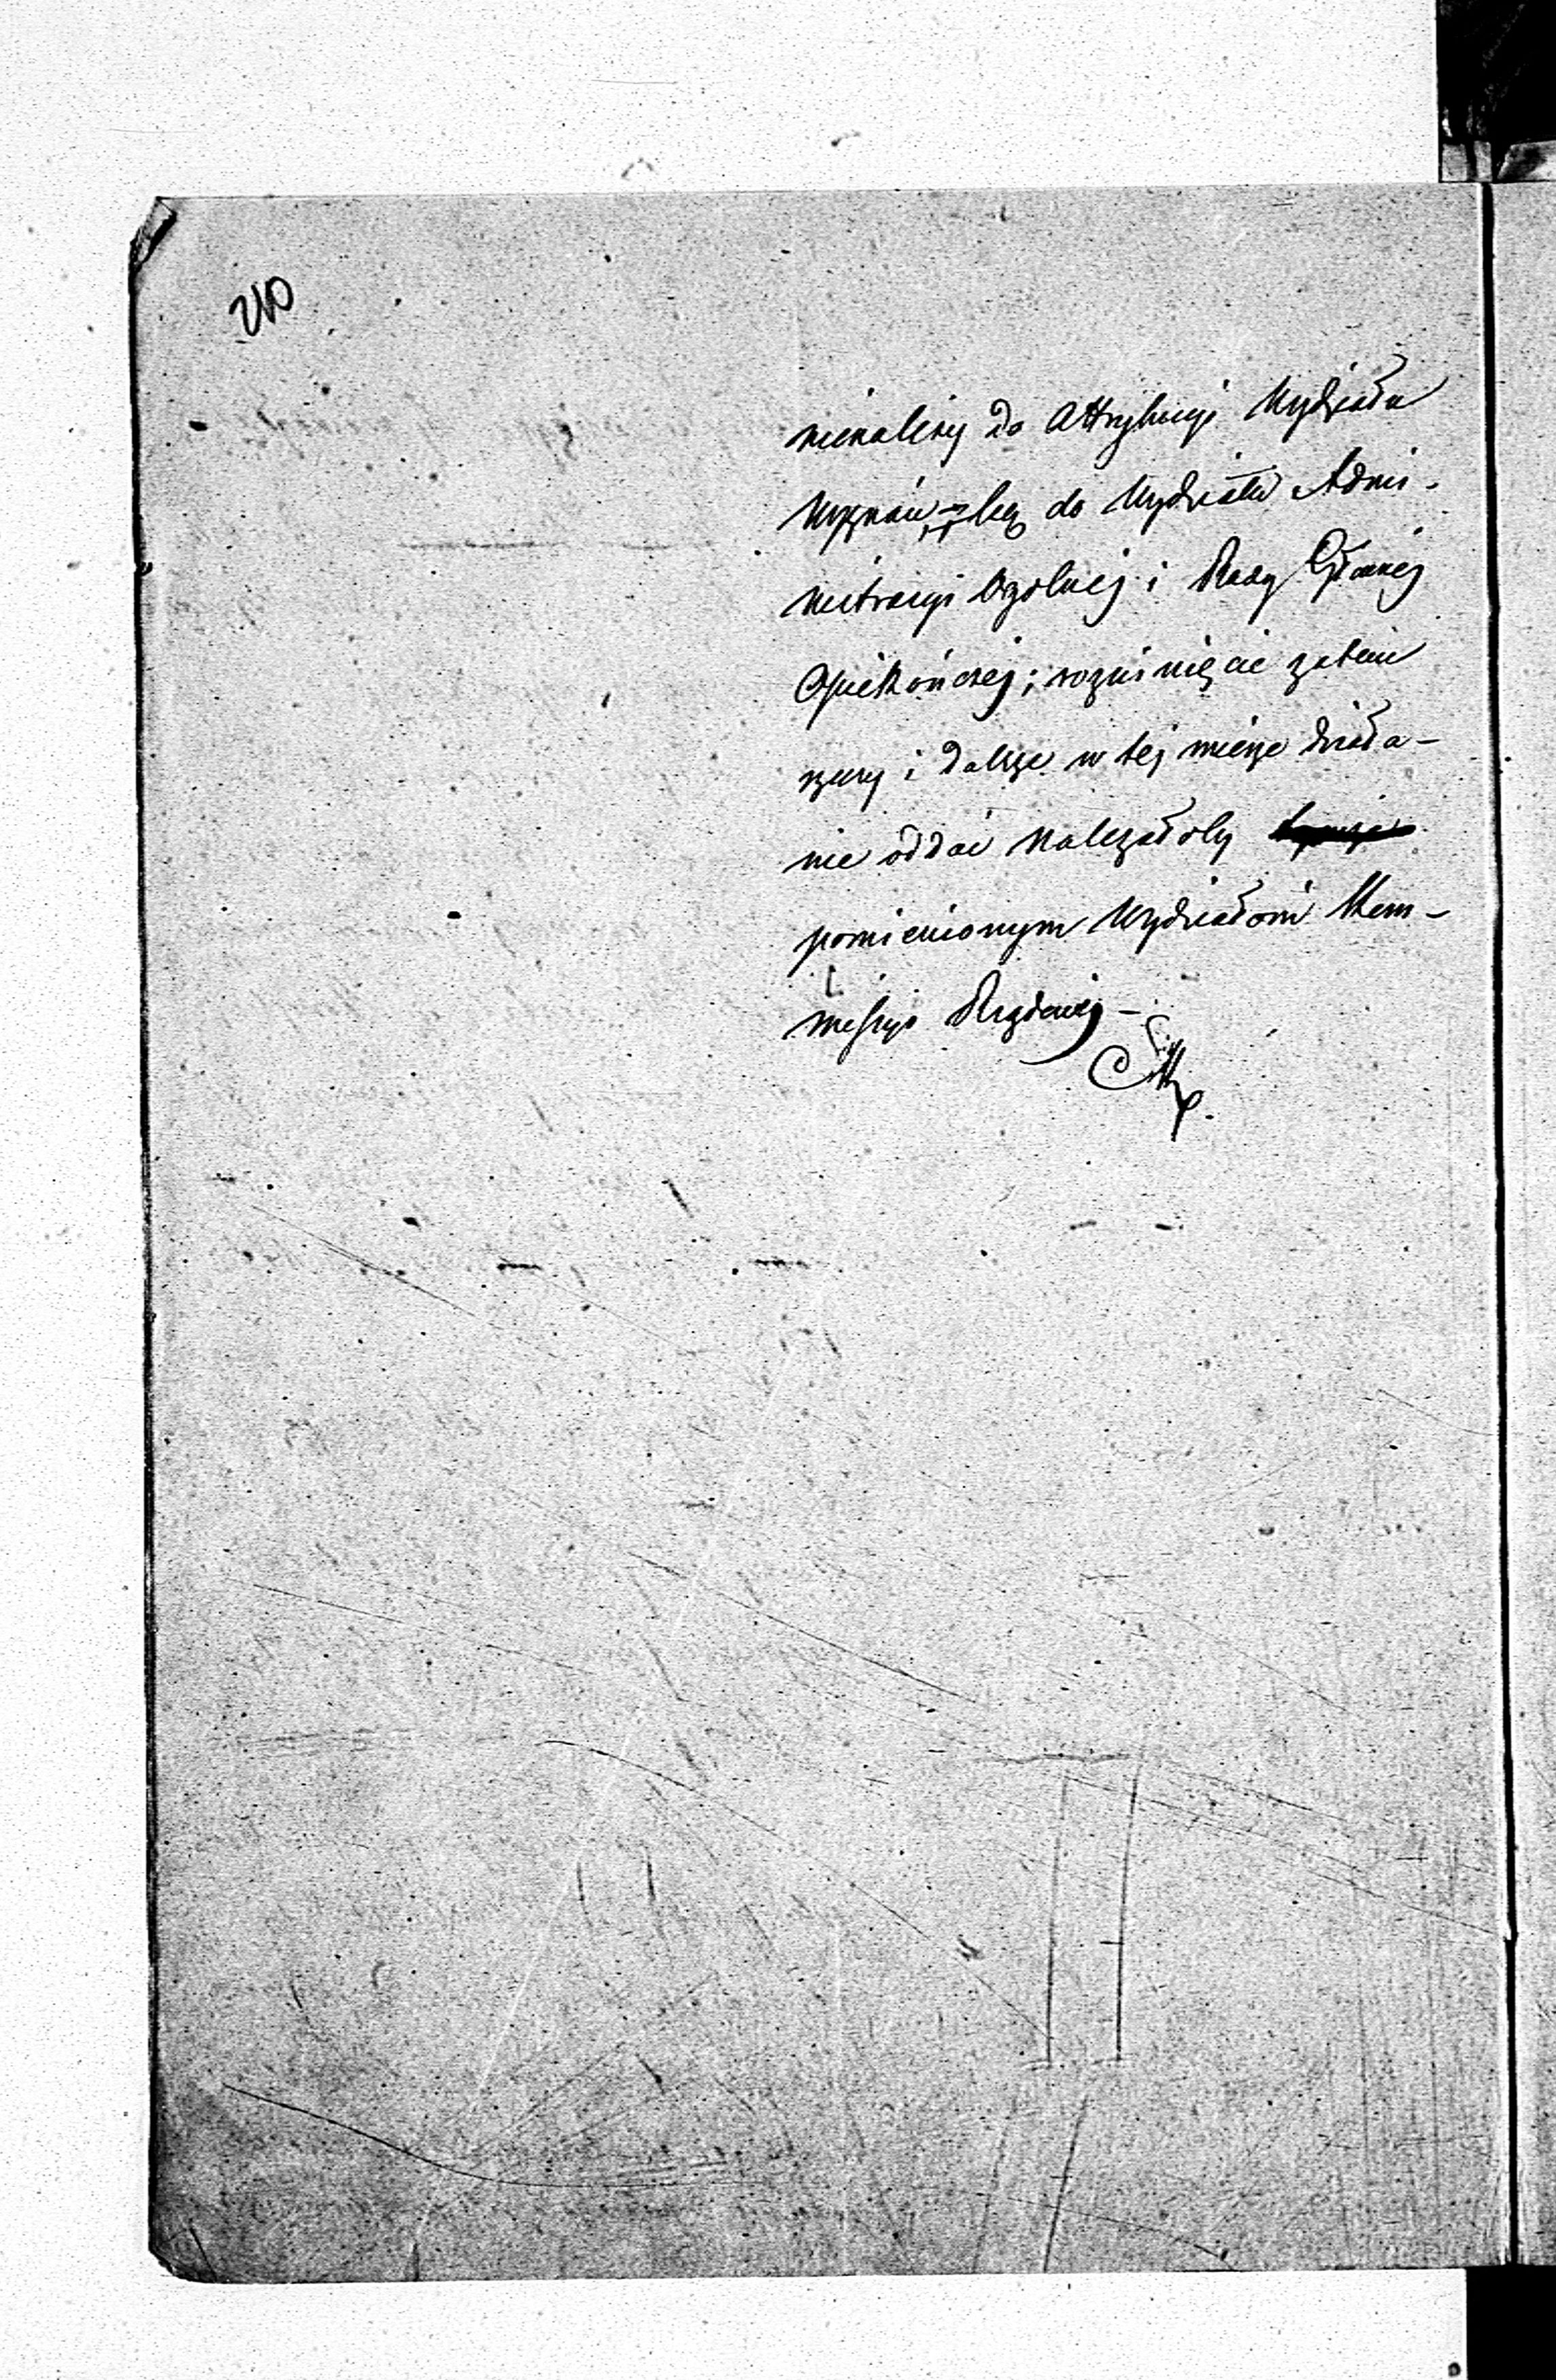 210
nienależy do Attrybucyi Wydziału
Wyznań, lecz do Wydziału Admi-
nistracyi Ogólnej i Rady Głównej
Opiekuńczej; rozciśnięcie zatem
i dalsze w tej mierze działa-
nie oddać należałoby
pomienionym Wydziałom Kom-
missyi Rządowej -